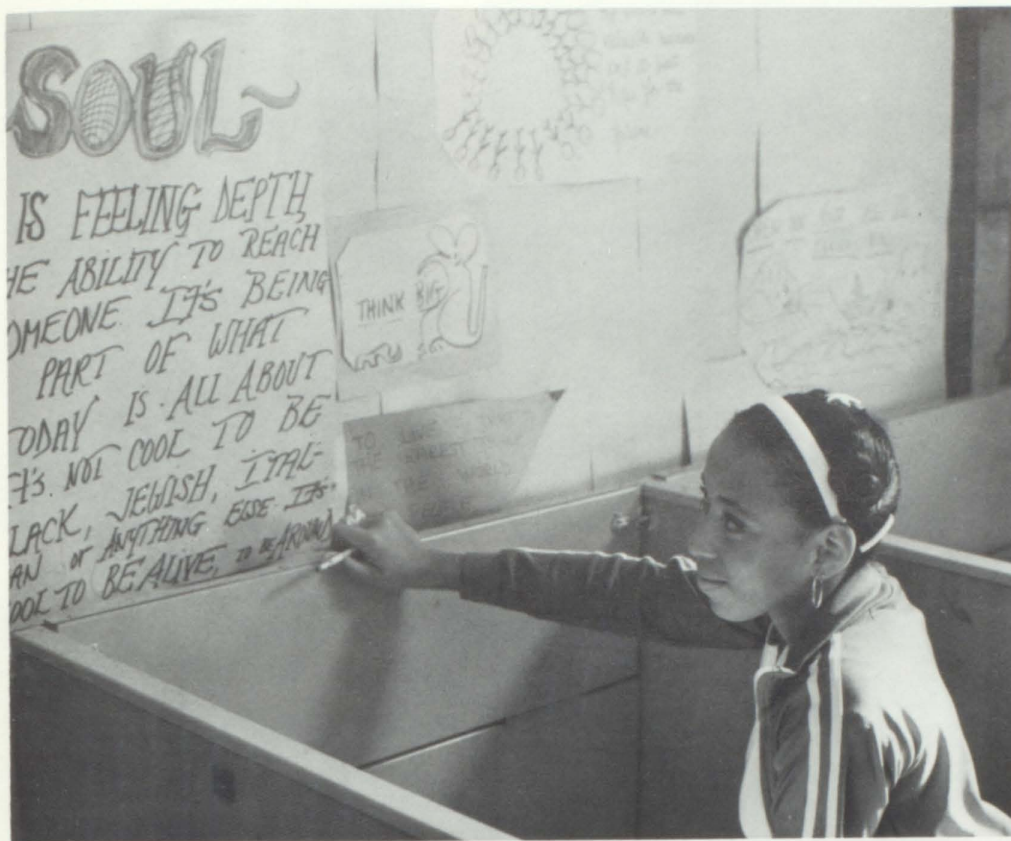 SOUL~
IS FEELING DEPTH,
HE ABILITY TO REACH
OMEONE. IT'S BEING
PART OF WHAT
ODAY IS ALL ABOUT
T'S NOT COOL TO BE
LACK, JEWISH, ITAL-
AN or ANYTHING ELSE. IT'S
OOL TO BE ALIVE, TO BE AROUND
THINK BIG
TO LIVE
THE
IN THE WORLD